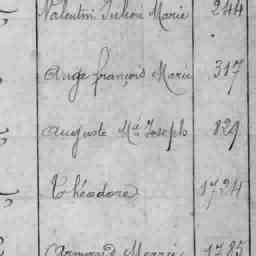 Valentin Julien Marie 244
Ange françois Marie 317
Auguste Mie Joseph 829
Théodore 1724
Armand Marie 1785